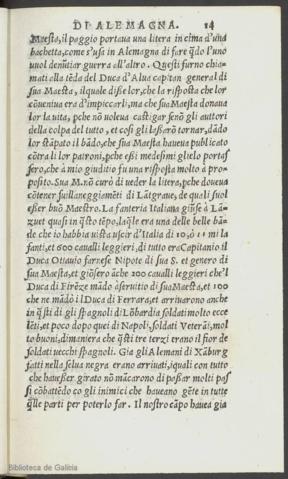 DI ALEMAGNA. 14
Maesta, il paggio portava una litera in cima d'una
bachetta, come s'usa in Alemagna di fare qdo l'uno
vuol denũtiar guerra all'altro. Questi furno chia-
mati alla tẽda del Duca d'Alua capitan general di
sua Maesta, il quale disse lor, che la risposta che lor
cõueniua era d'impiccarli, ma che sua Maesta donaua
lor la uita, pche nõ uoleua castigar senõ gli auttori
della colpa del tutto, et cosi gli lassarõ tornar, dãdo
lor stãpato il bãdo, che sua Maesta haueua publicato
cõtra li lor patroni, pche essi medesimi glielo portas
sero, che à mio giuditio fu una risposta molto à pro-
posito. Sua M. nõ curò di ueder la litera, pche doueua
cõtener suillaneggiamẽti di Lãtgraue, de quali suol
esser buõ Maestro. La fanteria Italiana giũse à Lãz
zuet quasi in q̃sto tẽpo, laq̃le era una delle belle bã-
de che io habbia uista uscir d'Italia di 10, ò 11 mi la
fanti, et 600 caualli leggieri, di tutto era Capitanio il
Duca Ottauio farnese Nipote di sua S. et genero di
sua Maesta, et giõsero ãche 200 caualli leggieri che'l
Duca di Firẽze mãdò à seruitio di sua Maesta, et 100
che ne mãdò il Duca di Ferrara, et arriuarono anche
in q̃sti dì gli spagnoli di Lõbardia soldati molto eccel
lẽti, et poco dopo quei di Napoli, soldati Veterãi, mol
to buoni, di maniera che q̃sti tre terzi erano il fior de
soldati uecchi spagnoli. Gia gli Alemani di Xãburg
fatti nella selua negra erano arriuati, i quali con tutto
che hauesser girato nõ mãcarono di passar molti pas
si cõbattẽdo co gli inimici che haueano gẽte in tutte
q̃lle parti per poterlo far. Il nostro cãpo hauea gia
Biblioteca de Galicia